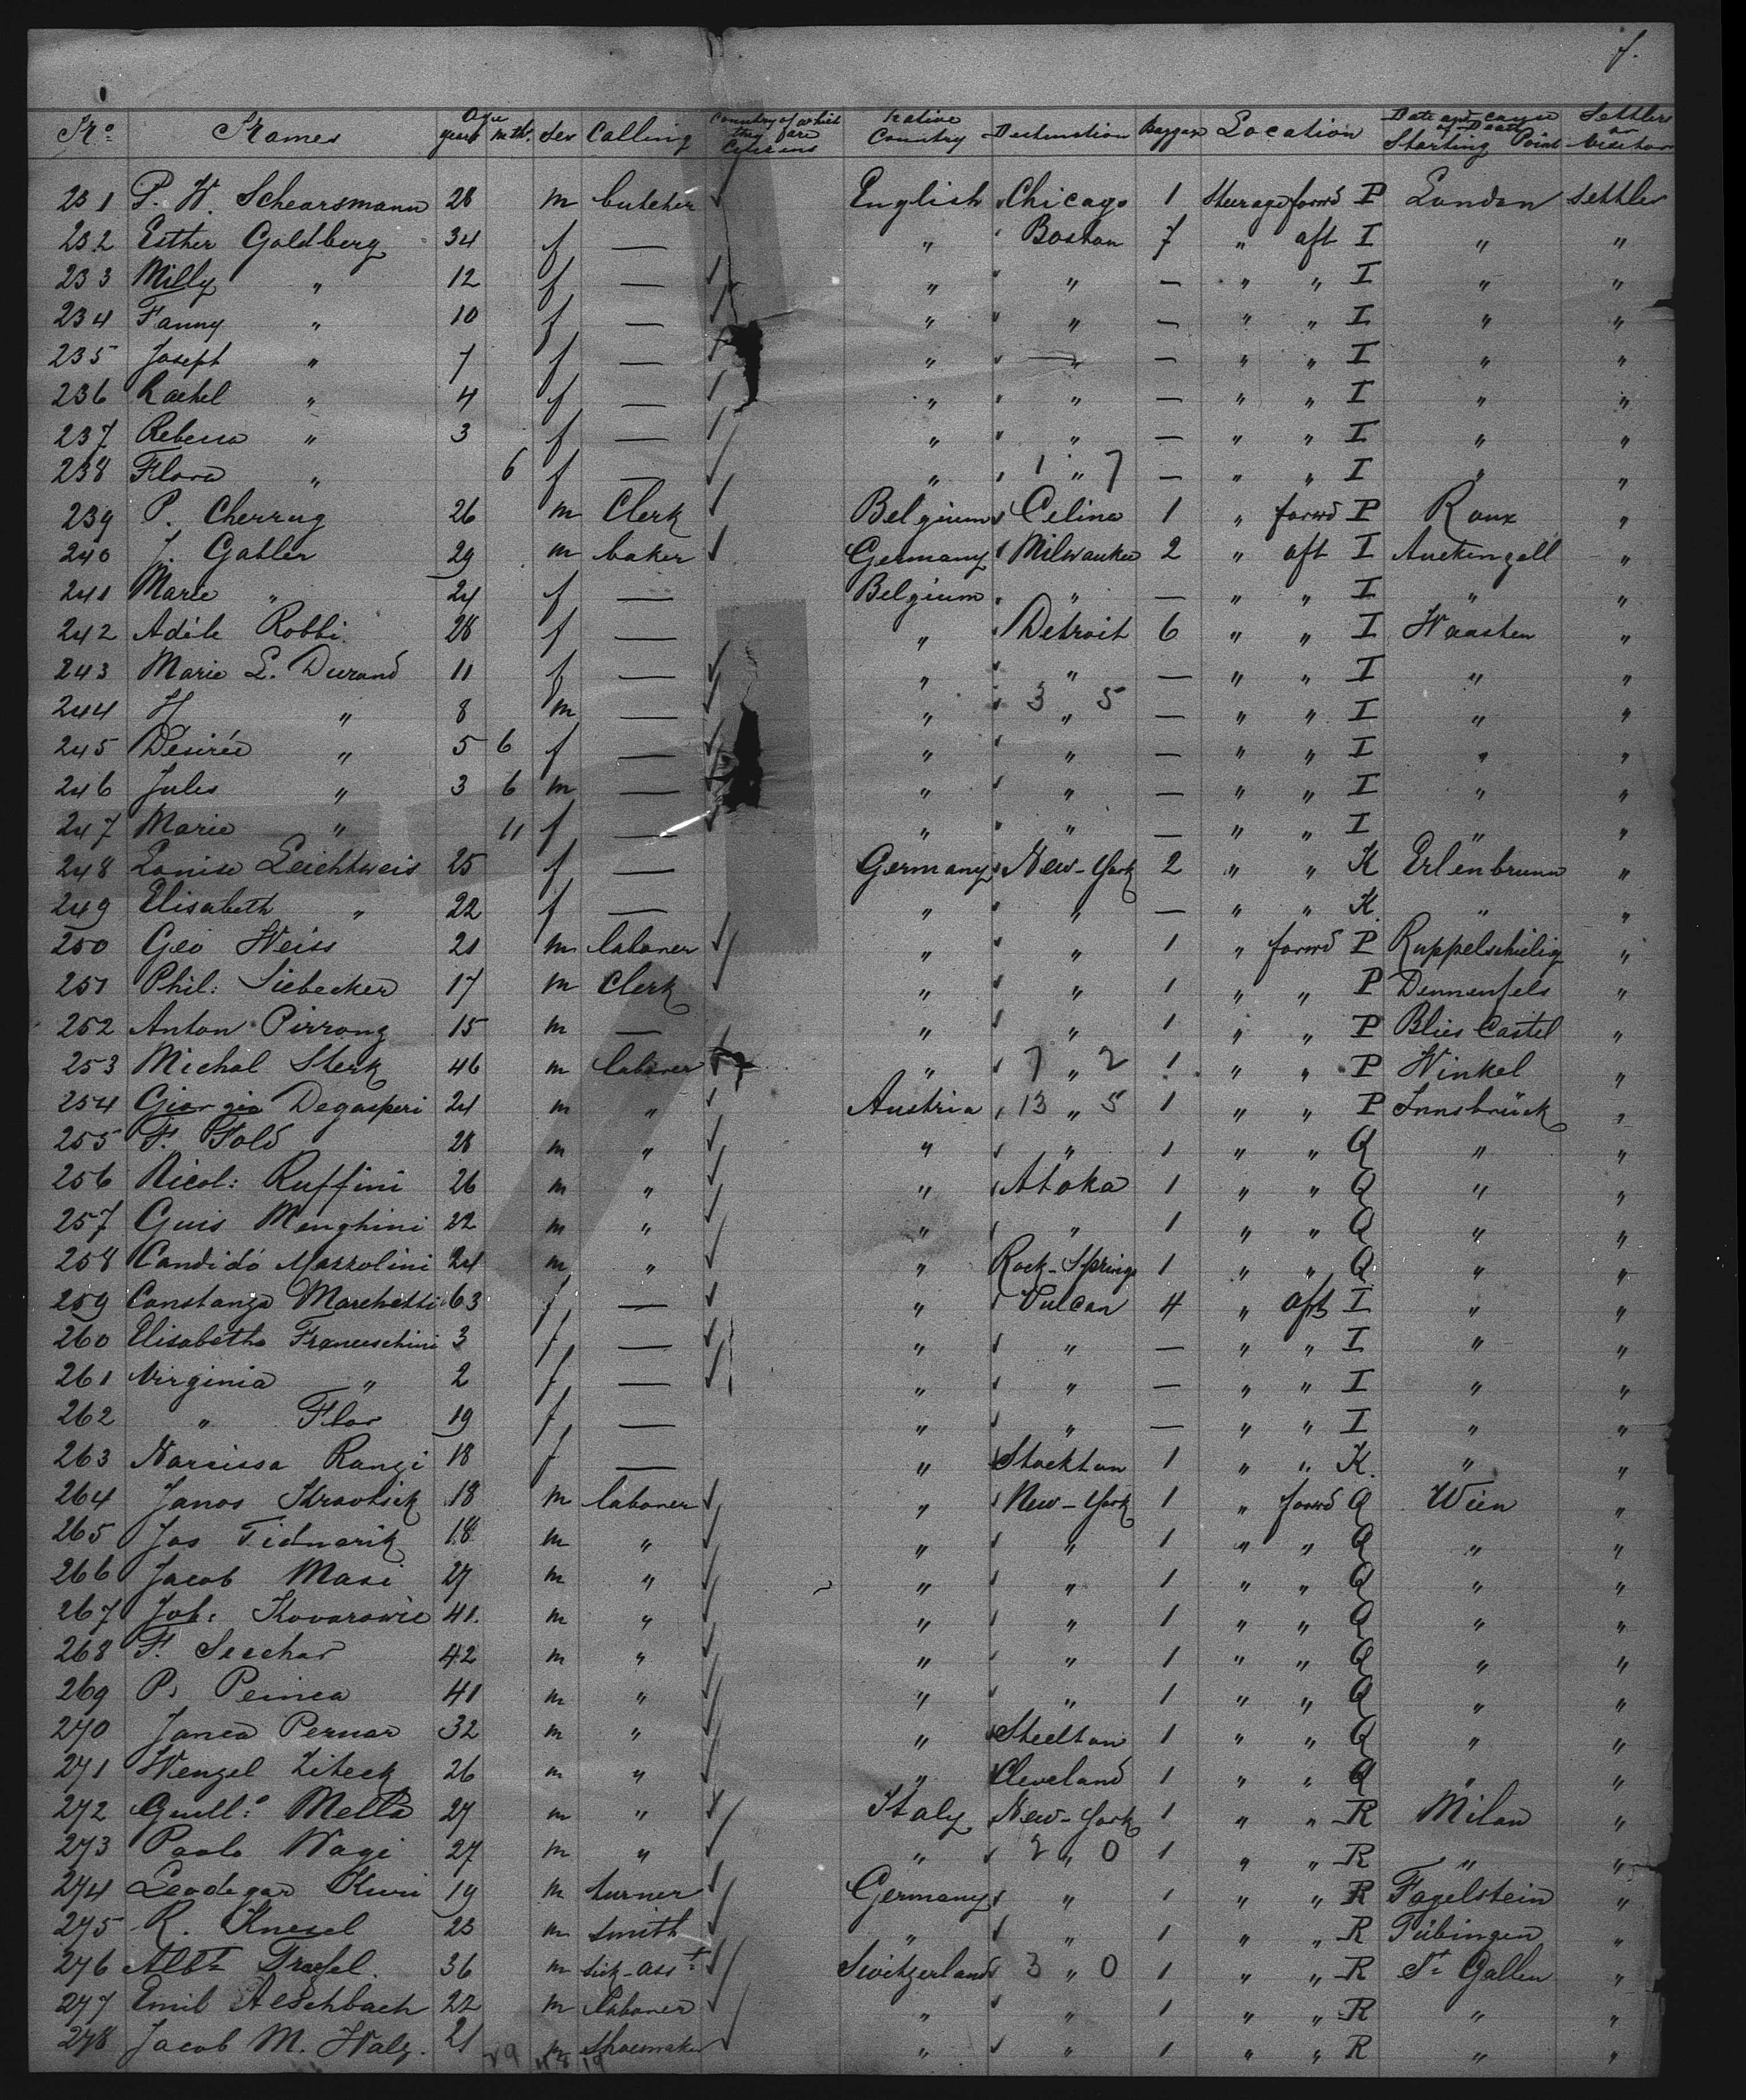 7.
No. Names Age years mth. Sex Calling Country of which they are Citizens Native Country Destination Baggage Location Date and cause of Death Starting Point Settlers or Visitors
231 P. W. Schearsmann 28 m butcher English Chicago 1 Steerage forwd P London Settler
232 Esther Goldberg 34 f — " Boston 7 " aft I " "
233 Milly " 12 f — " " — " " I " "
234 Fanny " 10 f — " " — " " I " "
235 Joseph " 7 f — " " — " " I " "
236 Rachel " 4 f — " " — " " I " "
237 Rebecca " 3 f — " " — " " I " "
238 Flora " 6 f — " 1 " 7 — " " I " "
239 P. Cherrug 26 m Clerk Belgium Celina 1 " forwd P Roux "
240 J. Gabler 29 m baker Germany Milwaukee 2 " aft I Auckingall "
241 Marie " 24 f — Belgium " — " " I " "
242 Adéle Robbi 28 f — " Detroit 6 " " I Waasten "
243 Marie L. Durand 11 f — " " — " " I " "
244 H " 8 m — " 3 " 5 — " " I " "
245 Desirée " 5 6 f — " " — " " I " "
246 Jules " 3 6 m — " " — " " I " "
247 Marie " 11 f — " " — " " I " "
248 Louise Leichtweis 25 f — Germany New-York 2 " " K Erlenbrunn "
249 Elisabeth " 22 f — " " — " " K " "
250 Geo Weiss 21 m laborer " " 1 " forwd P "
251 Phil: Siebecker 17 m Clerk " " 1 " " P Dennenfels "
252 Anton Pirrong 15 m — " " 1 " " P Blies Castel "
253 Michal Sterk 46 m laborer " 7 " 2 1 " " P Winkel "
254 Giorgio Degasperi 24 m " Austria 13 " 5 1 " " P Innsbrück "
255 F. Told 28 m " " " 1 " " Q " "
256 Nicol: Ruffini 26 m " " Atoka 1 " " Q " "
257 Guis Menghini 22 m " " " 1 " " Q " "
258 Candido Mazzolini 24 m " " Rock-Springs 1 " " Q " "
259 Constanza Marchetti 63 f — " Vulcan 4 " aft I " "
260 Elisabetha Franceschini 3 f — " " — " " I " "
261 Virginia " 2 f — " " — " " I " "
262 " Flor 19 f — " " — " " I " "
263 Narcissa Rangi 18 f — " Stockton 1 " " K. " "
264 Janos Kravtsik 18 m laborer " New-York 1 " forwd Q Wien "
265 Jos Tidnarik 18 m " " " 1 " " Q " "
266 Jacob Masi 27 m " " " 1 " " Q " "
267 Joh: Kovarowic 41. m " " " 1 " " Q " "
268 F. Seechar 42 m " " " 1 " " Q " "
269 P. Peinca 41 m " " " 1 " " Q " "
270 Janca Pernar 32 m " " Steelton 1 " " Q " "
271 Wenzel Ziteck 26 m " " Cleveland 1 " " Q " "
272 Guill:o Mella 27 m " Italy New-York 1 " " R Milan "
273 Paolo Nagi 27 m " " 2 " 0 1 " " R " "
274 Leodegar Kuri 19 m turner Germany " 1 " " R Fagelstein "
275 R. Knesel 23 m smith " " 1 " " R Tübingen "
276 Albt Traefel. 36 m Switzerland 3 " 0 1 " " R St Gallen "
277 Emil Aeschbach 22 m laborer " " 1 " " R " "
278 Jacob M. Walz. 21 m Shoemaker " " 1 " " R " "
29 48 19